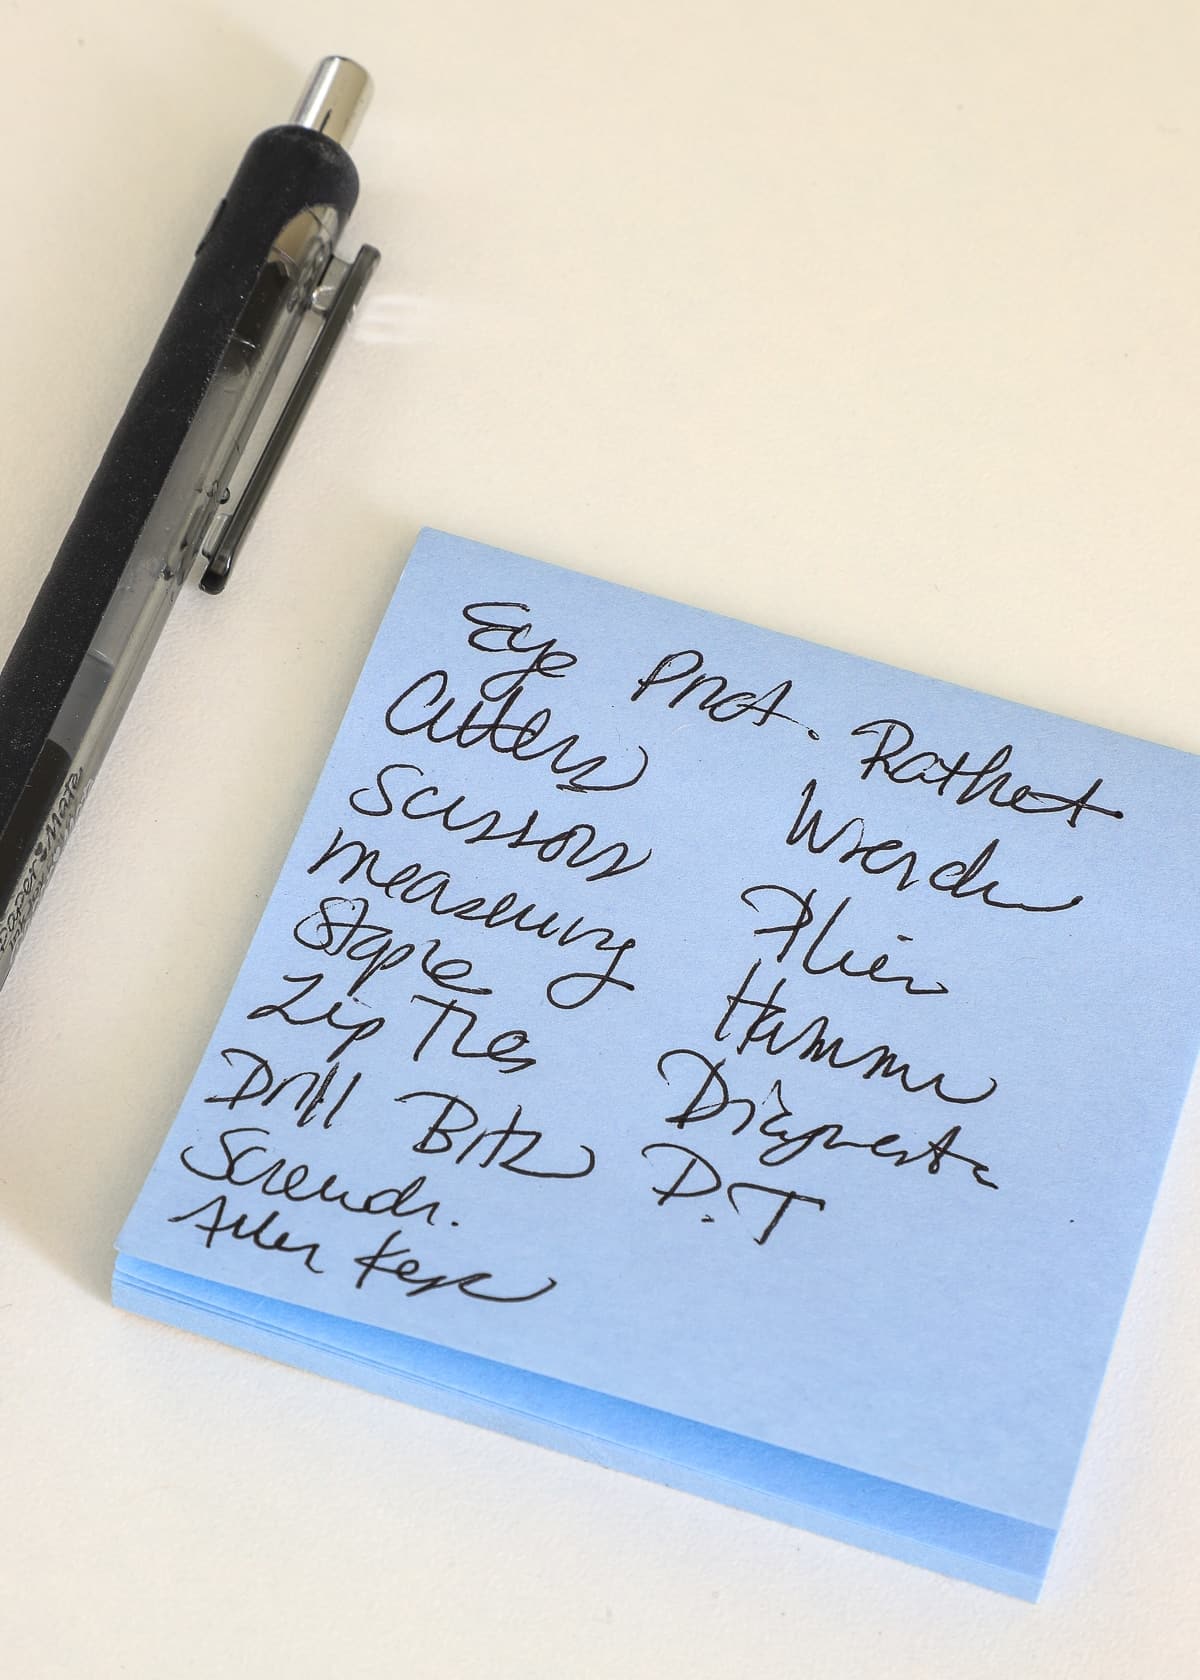 Eye Prot.
Cutters
Scissors
measuring
Staple
Zip Ties
Drill Bits
Screwdr.
Allen Keys
Rathet
Wrench
Plier
Hammer
D.T
Paper Mate